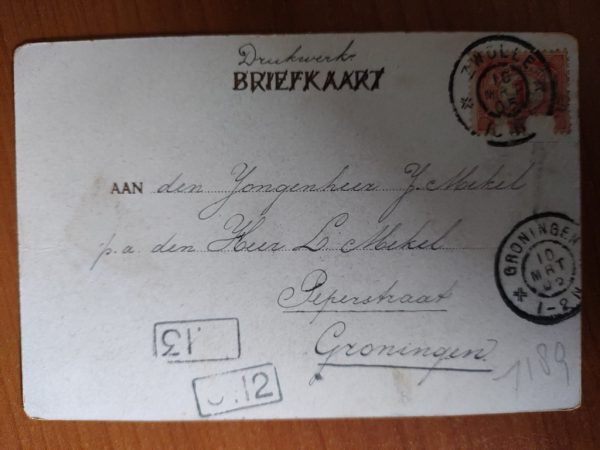 Drukwerk
BRIEFKAART
ZWOLLE
10
MRT
05
AAN den Jongenheer J. Mekel
p.a. den Heer L. Mekel
Peperstraat
Groningen
GRONINGEN
10
MRT
05
1-2N
13
.12
1189